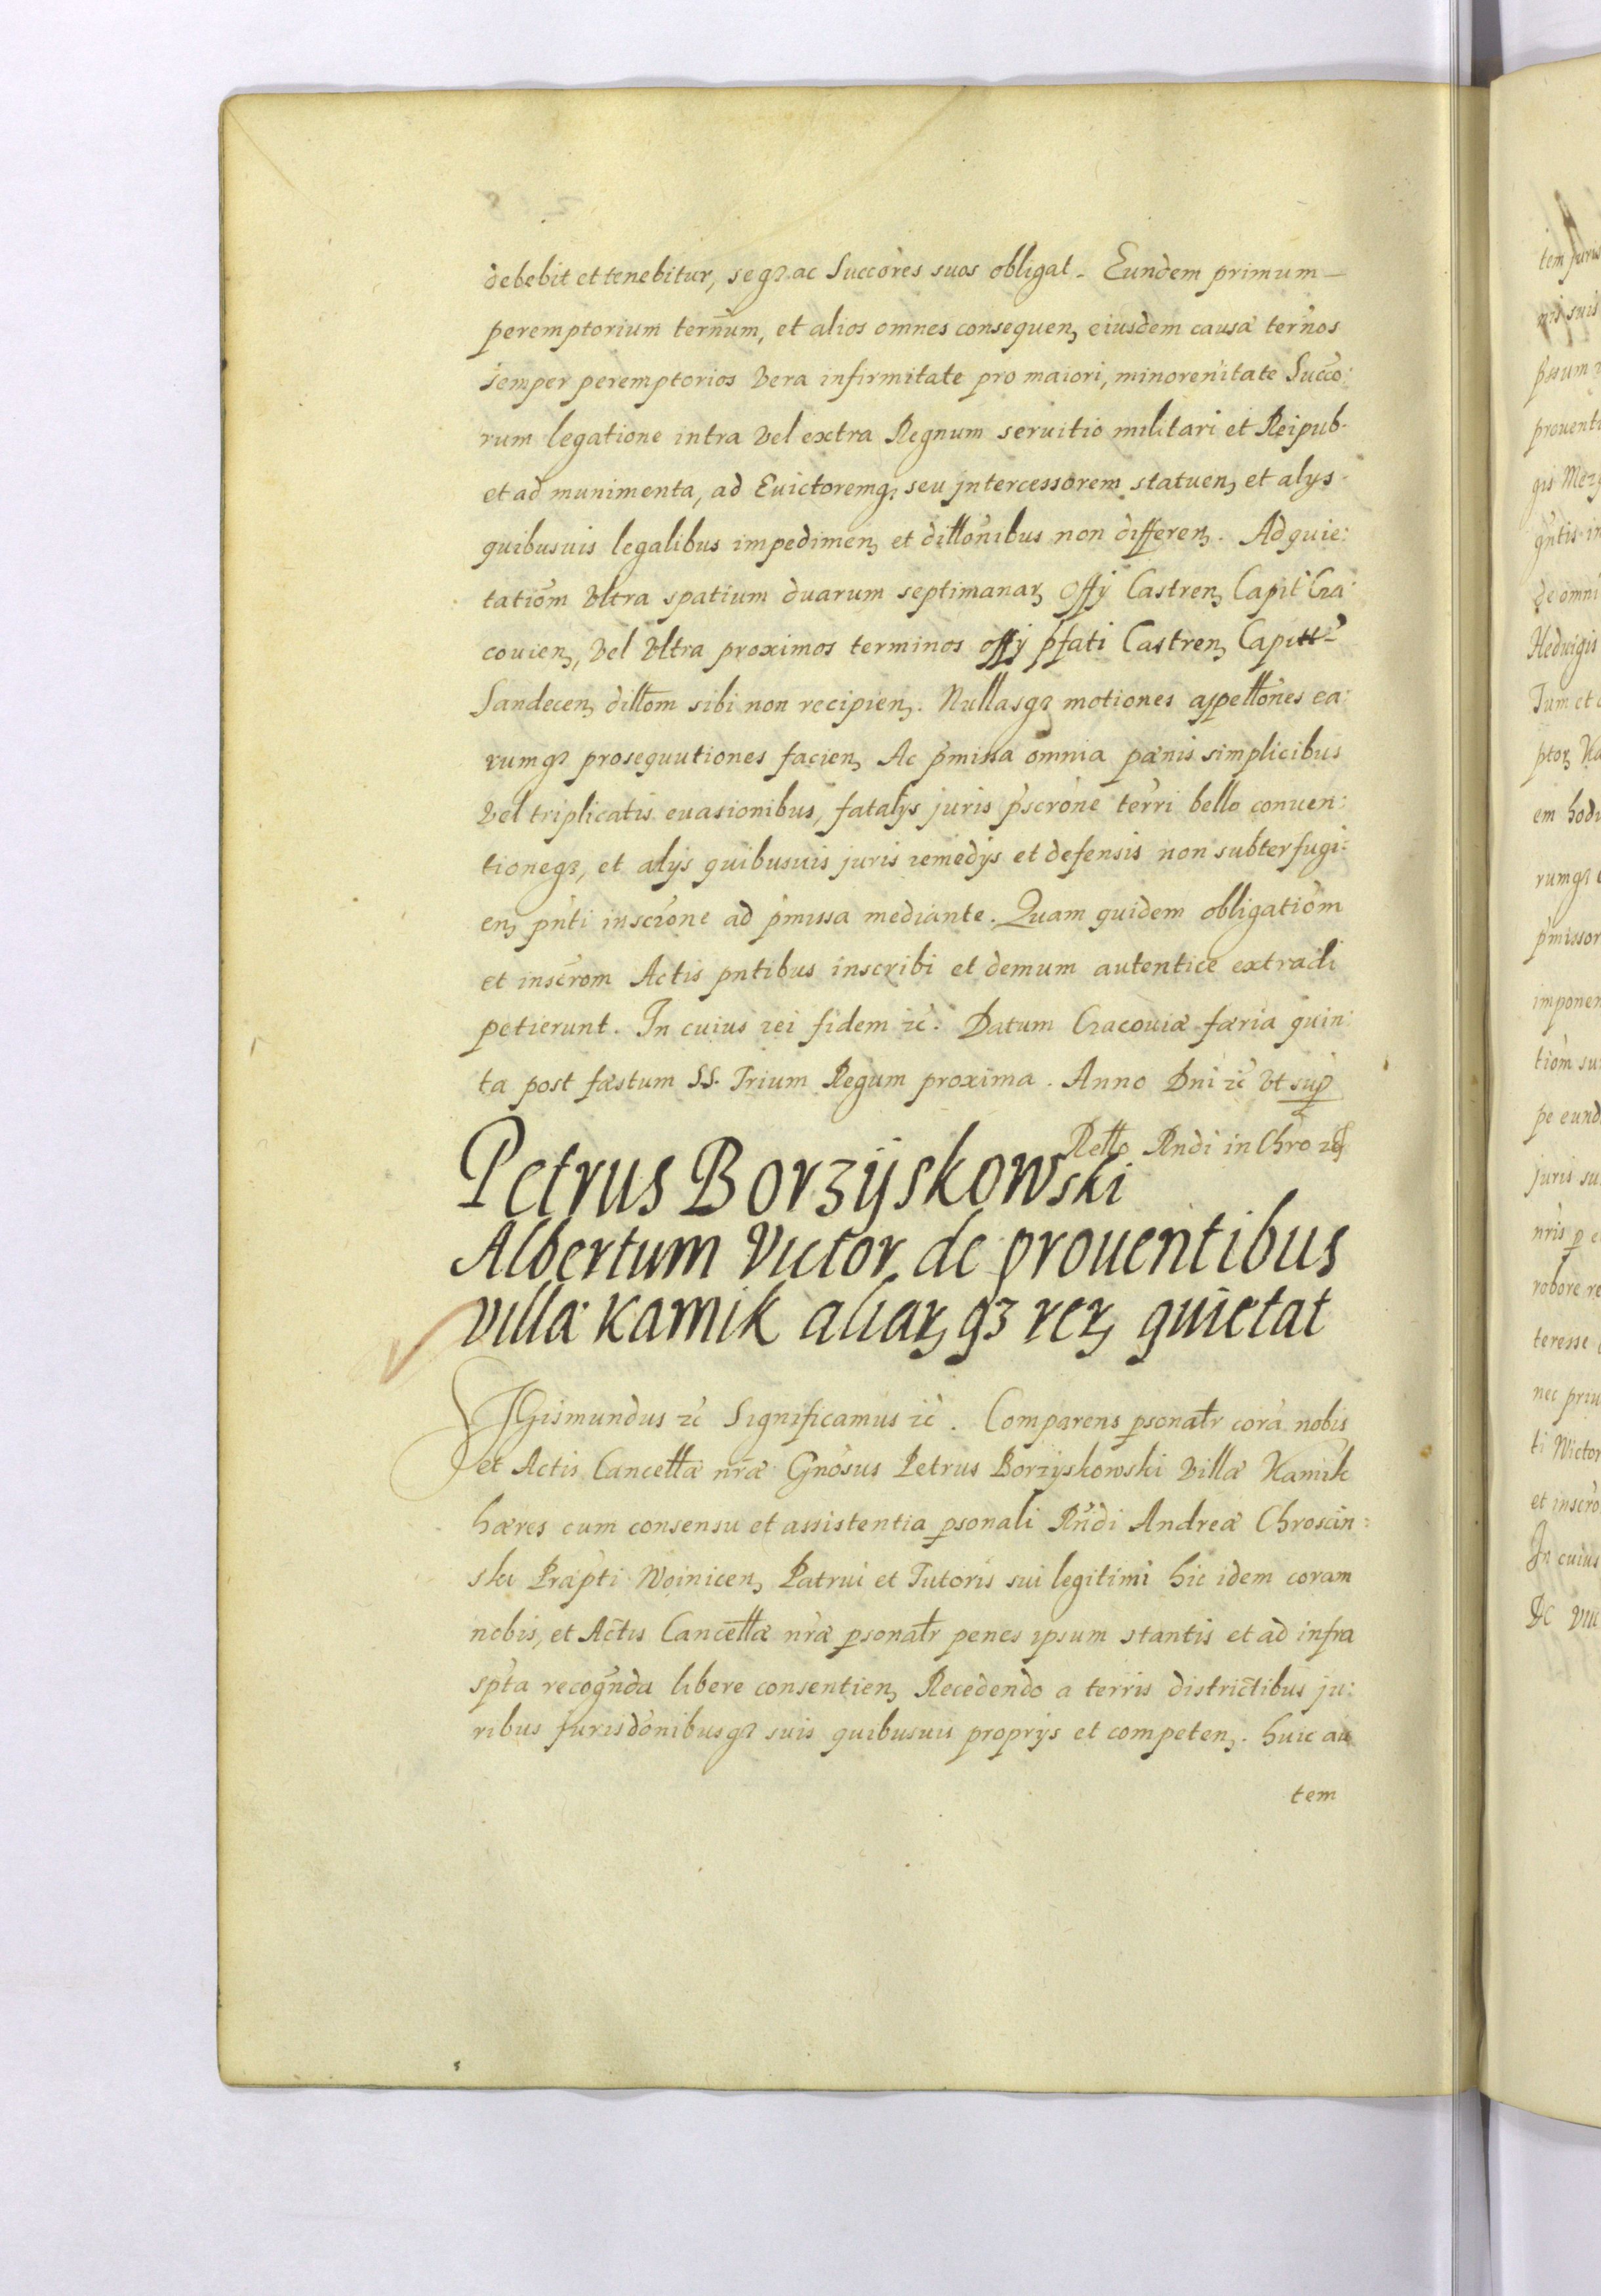 debebit et tenebitur, seqȝ ac Succōres suos obligat. Eundem primum
peremptorium term̄um, et alios omnes consequen, eiusdem causæ term̄os
semper peremptorios vera infirmitate pro maiori, minorenitate Succo:
rum legatione intra vel extra Regnum seruitio militari et Reipub.
et ad munimenta, ad Euictoremqȝ seu intercessorem statuen, et alys
quibusuis legalibus impedimen, et dillōnibus non differen. Ad quie:
tatiōm vltra spatium duarum septimanar, Offy Castren, Capit Cra
couien, vel vltra proximos terminos offy p̄fati Castren, Capitt
Sandecen, dillōm sibi non recipien. Nullasqȝ motiones appellōnes ea:
rumqȝ prosequutiones facien, Ac p̄missa omnia pænis simplicibus
vel triplicatis euasionibus, fatalys juris p̄scrōne terri bello conuen:
tioneqȝ, et alijs quibusuis juris remedys et defensis non subterfugi:
en, pn̄ti inscrōne ad p̄missa mediante. Quam quidem obligatiōm
et inscrōm Actis pn̄tibus inscribi et demum autentice extradi
petierunt. In cuius rei fidem ꝛc̄. Datum Cracouiæ færia quin
ta post fæstum SS. Trium Regum proxima. Anno Dn̄i ꝛc̄ vt sup̄
Rello Rn̄di in Chrō ꝛc̄
Petrus Borzyskowski
Albertum Victor, de prouentibus
villæ Kamik aliar, qȝ rer, quietat
Sigismundus ꝛc̄ Significamus ꝛc̄. Comparens p̱sonalr corā nobis
et Actis Cancellæ nr̄æ Gn̄osus Petrus Borzyskowski villæ Kamik
hæres cum consensu et assistentia p̱sonali Rn̄di Andreæ Chroscin:
ski Præpti Woinicen, Patrui et Tutoris sui legitimi hic idem coram
nobis, et Actis Cancellæ nr̄æ p̱sonalr penes ipsum stantis et ad infra
sp̄ta recogn̄da libere consentien, Recedendo a terris districtibus ju:
ribus jurisdōnibusqȝ suis quibusuis proprys et competen. huic au
tem